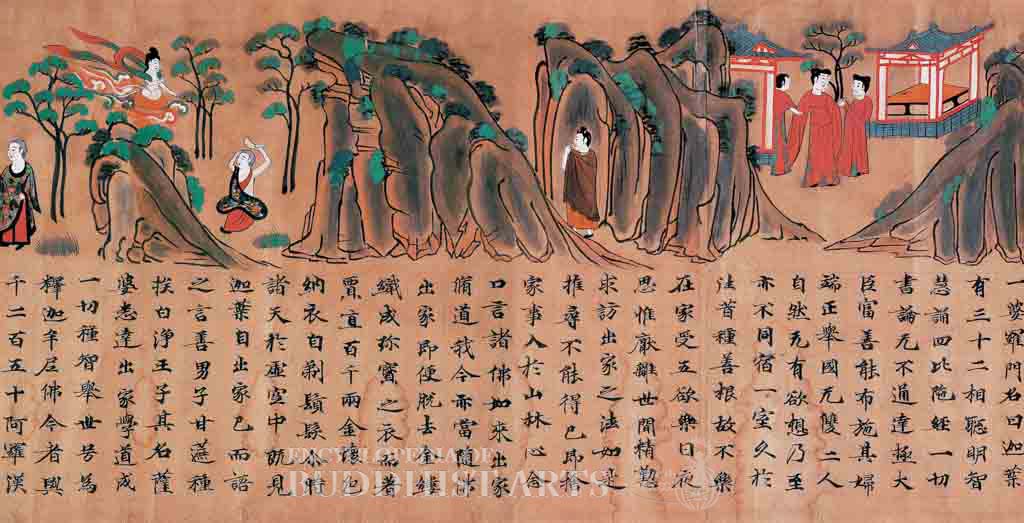 一婆羅門名曰迦葉
有三十二相聰明智
慧誦四毗陁經一切
書論无不通達極大
巨富善能布施其婦
端正舉國无雙二人
自然无有欲想乃至
亦不同宿一室久於
往昔種善根故不樂
在家受五欲樂日夜
思惟厭離世間精勤
求訪出家之法如是
推尋不能得已即捨
家事入於山林心念
口言諸佛如來出家
脩道我今亦當隨佛
出家即便脫去金縷
織成珎寶之衣而著
賈直百千兩金壞色
納衣自剃鬚髮尒時
諸天於虛空中既見
迦葉自出家已而語
之言善男子甘蔗種
族白淨王子其名薩
婆悉達出家學道成
一切種智舉世号為
釋迦牟尼佛今者與
千二百五十阿羅漢
ENCYCLOPEDIA OF
BUDDHIST ARTS